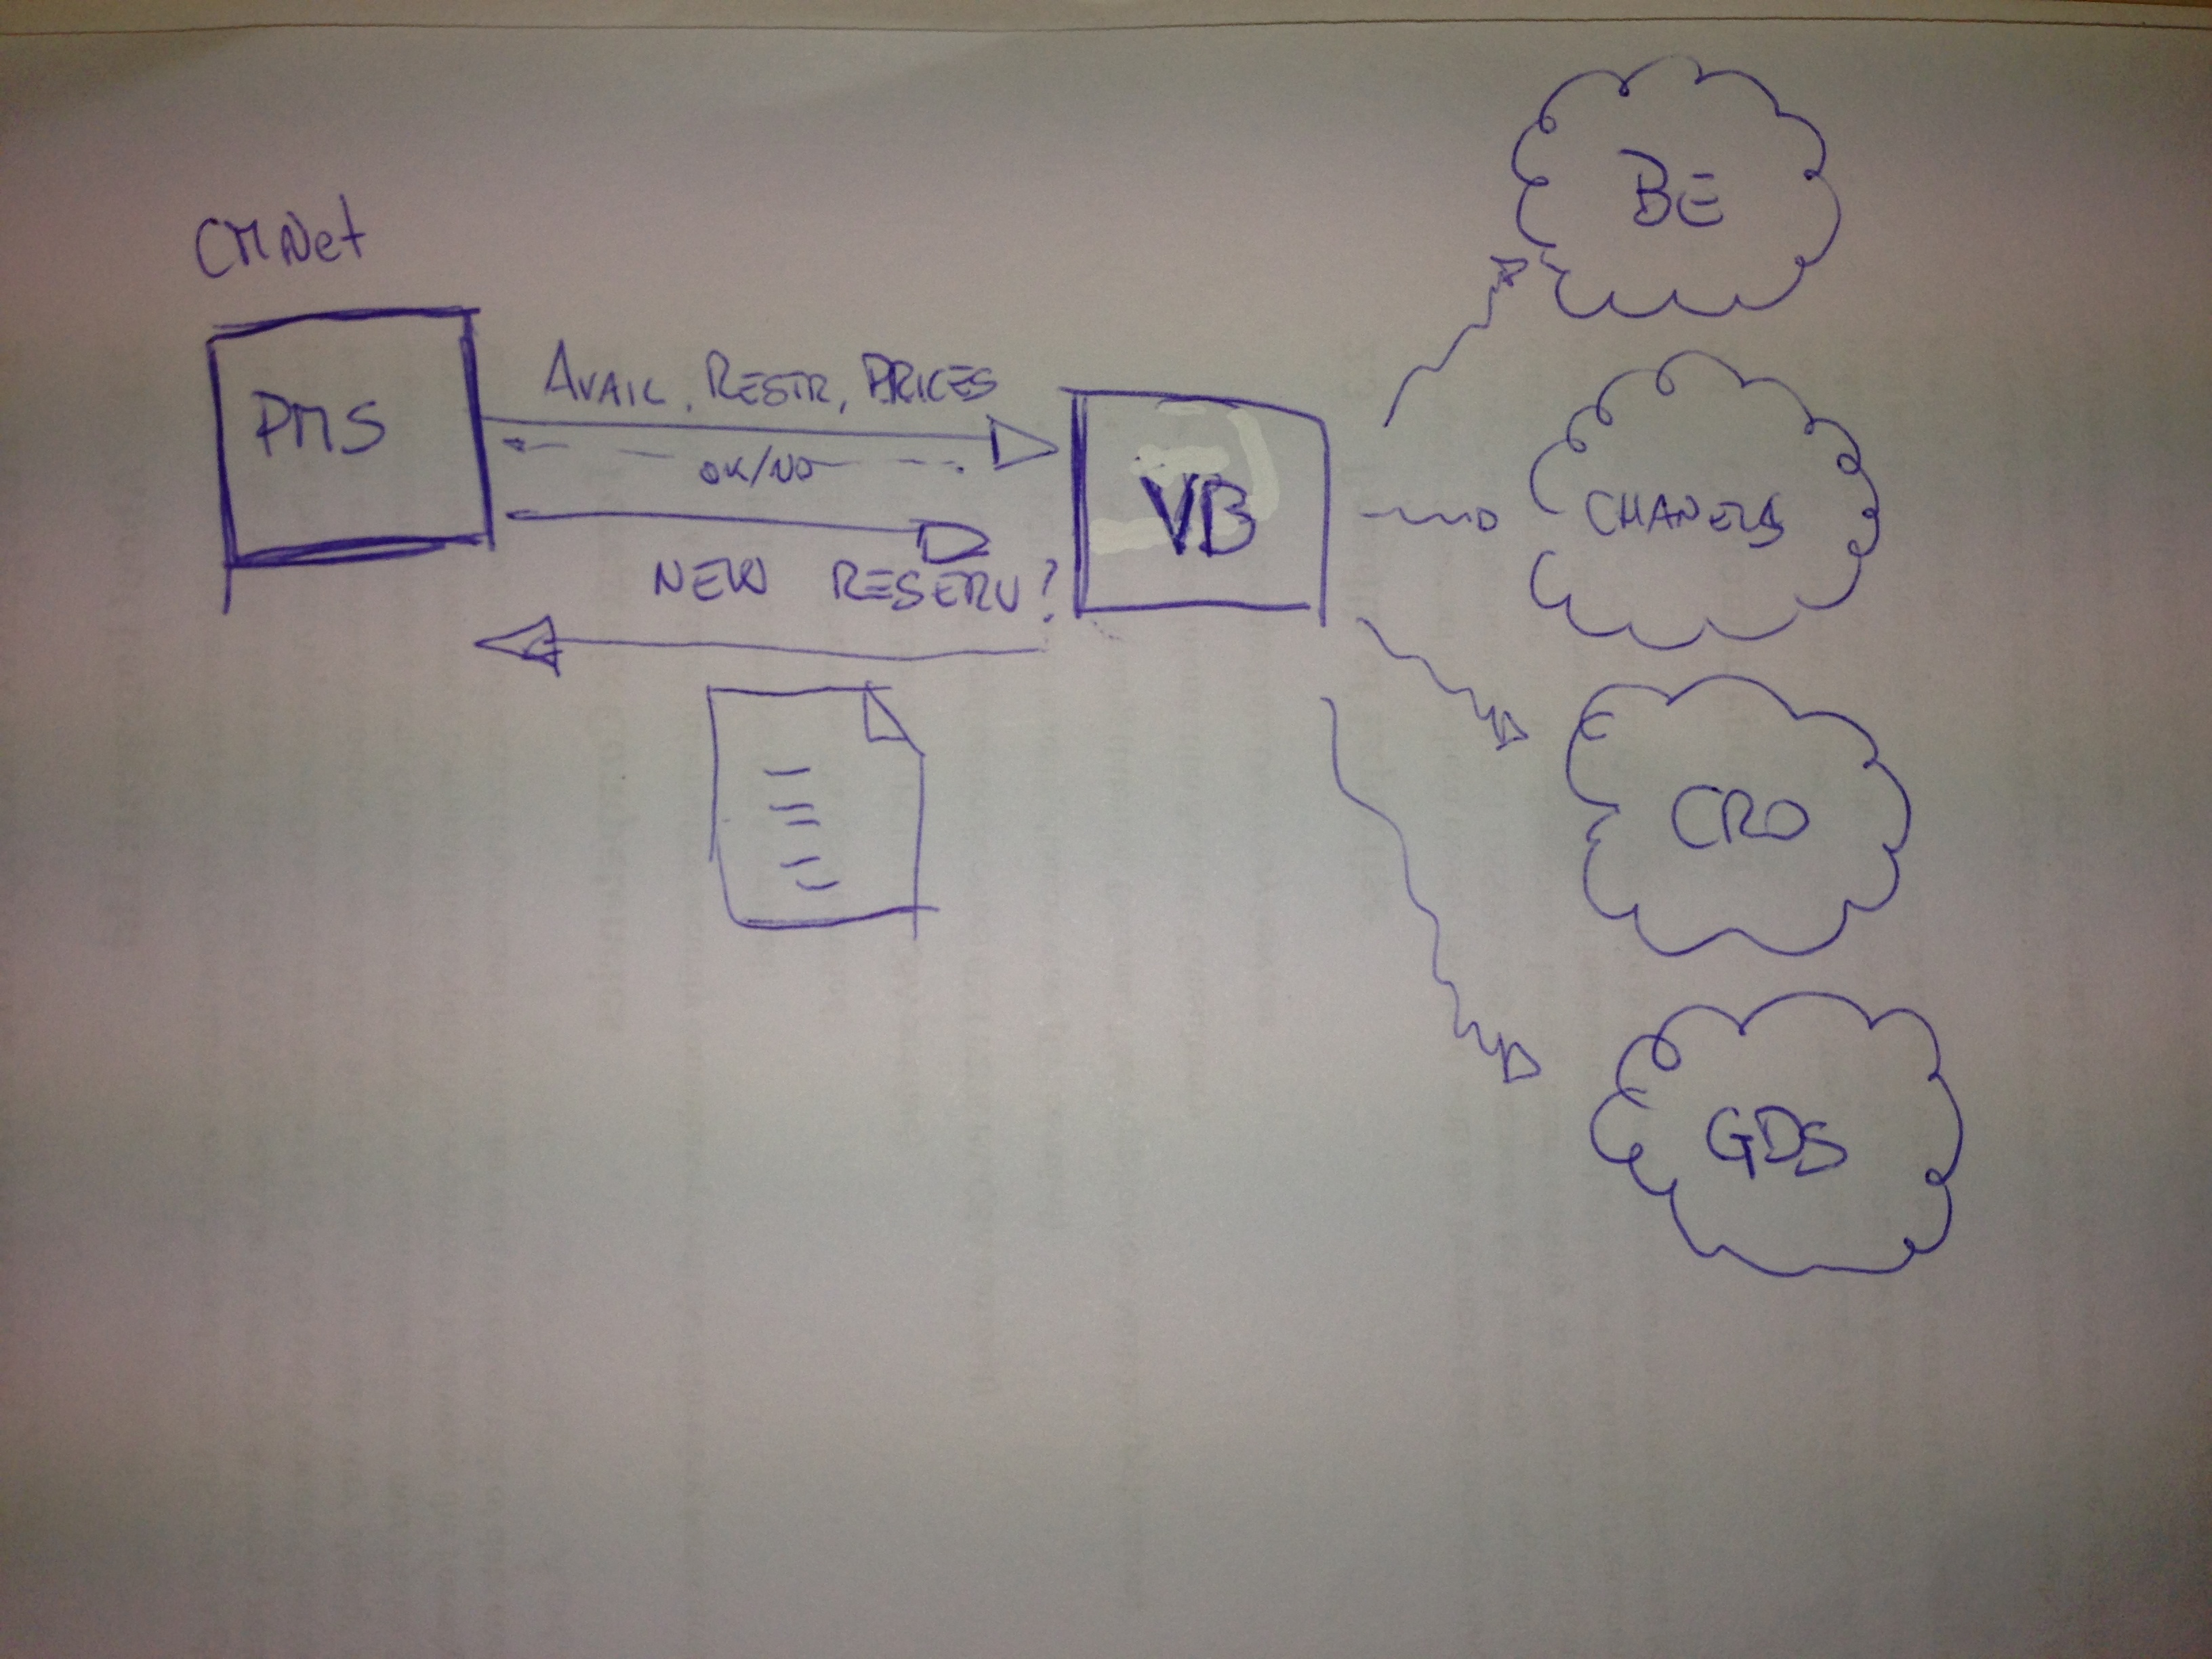 CMNet
PMS
AVAIL. RESTR, PRICES
OK/NO
NEW RESERV?
VB
BE
CHANELS
CRO
GDS